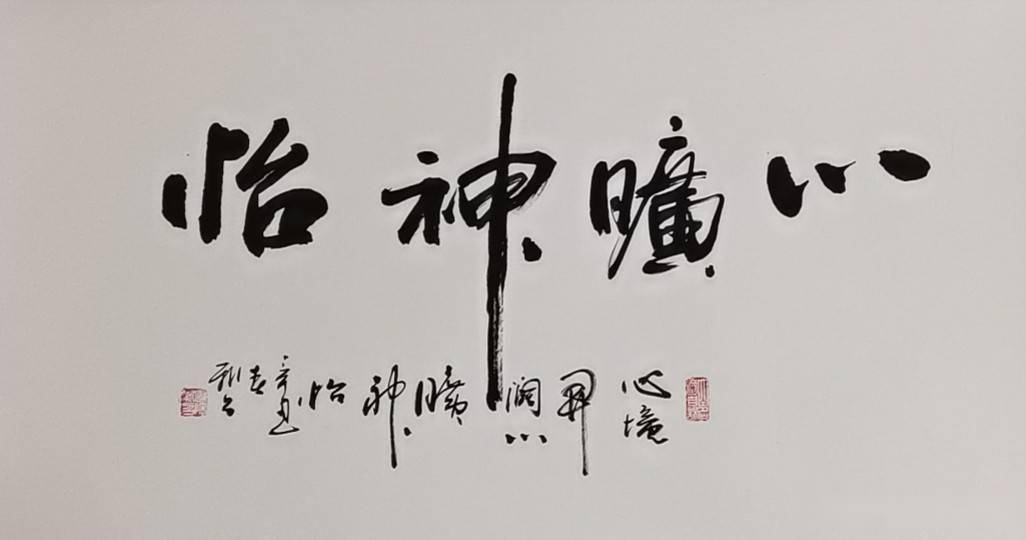 心曠神怡
心境開阔心曠神怡
辛丑春